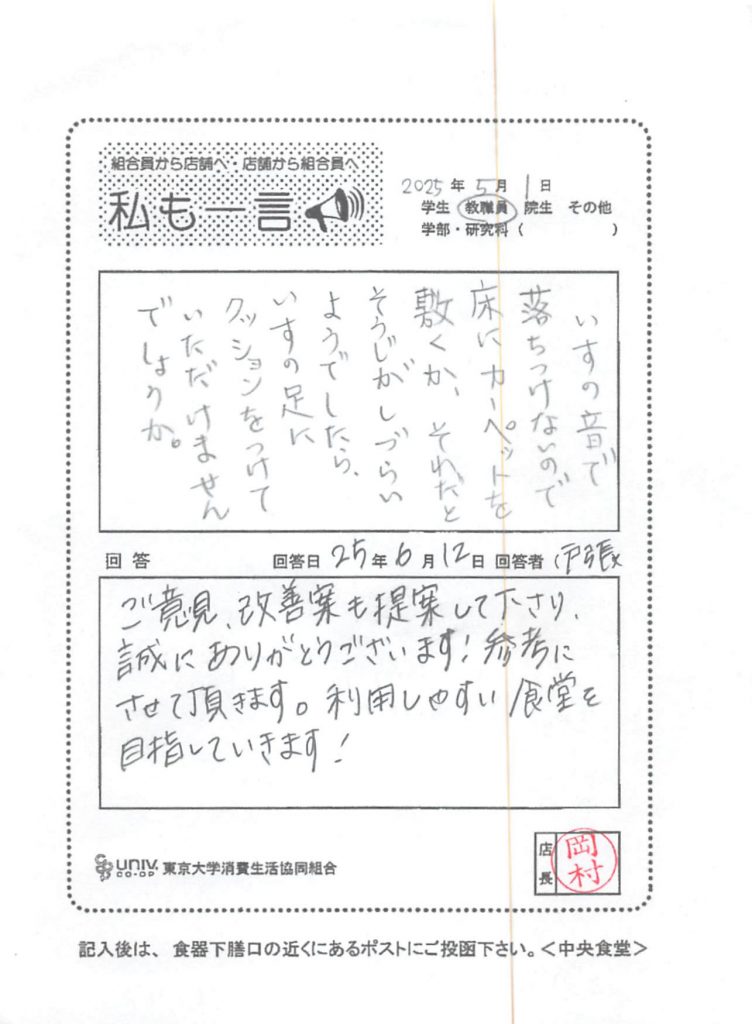 組合員から店舗へ・店舗から組合員へ
私も一言
2025年5月1日
学生 教職員 院生 その他
学部・研究科（　　　　）
いすの音で
落ちつけないので
床にカーペットを
敷くか、それだと
そうじがしづらい
ようでしたら、
いすの足に
クッションをつけて
いただけません
でしょうか。
回答 回答日 25年6月12日 回答者（戸張
ご意見、改善案も提案して下さり、
誠にありがとうございます！参考に
させて頂きます。利用しやすい食堂を
目指していきます！
UNIV. CO-OP 東京大学消費生活協同組合
店長 岡村
記入後は、食器下膳口の近くにあるポストにご投函下さい。＜中央食堂＞